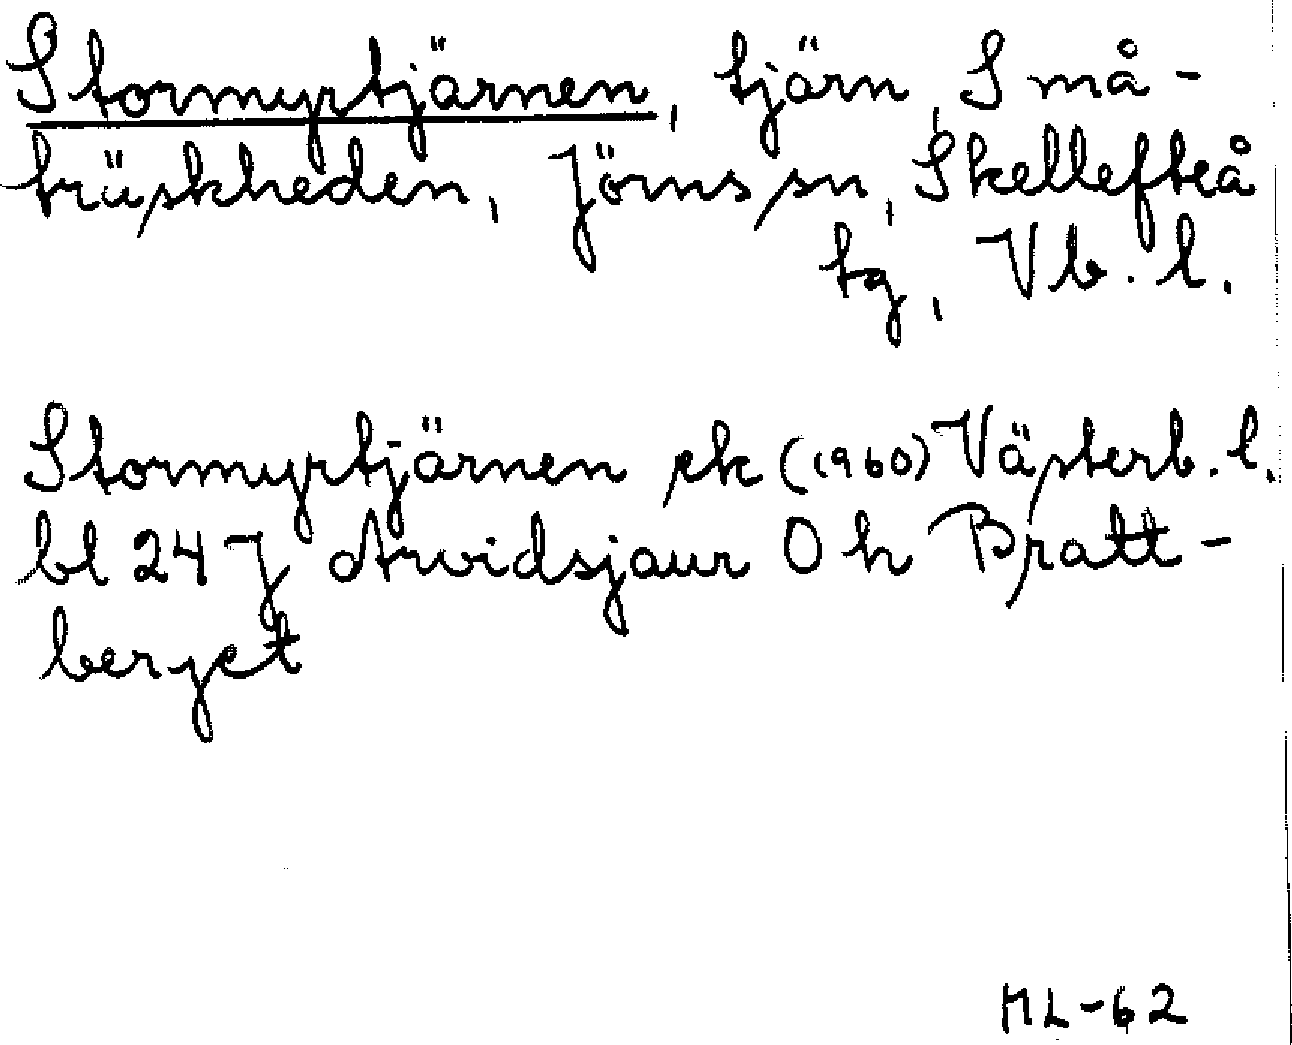 Stormyrtjärnen, tjärn, Små-
träskheden, Jörns sn, Skellefteå
tg, Vb. l.
Stormyrtjärnen ek (1960) Västerb. l.
bl 24 J Arvidsjaur Ö h Bratt-
berget
ML-62